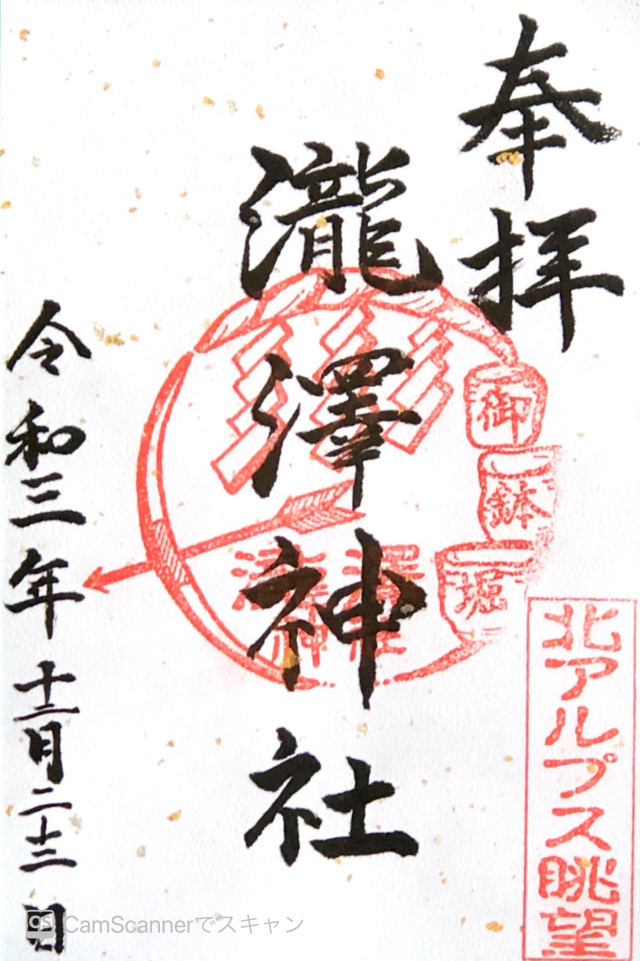 奉拝
御
鉢
堀
北アルプス眺望
瀧澤神社
瀧澤
神社
令和三年十二月二十三日
CS CamScannerでスキャン